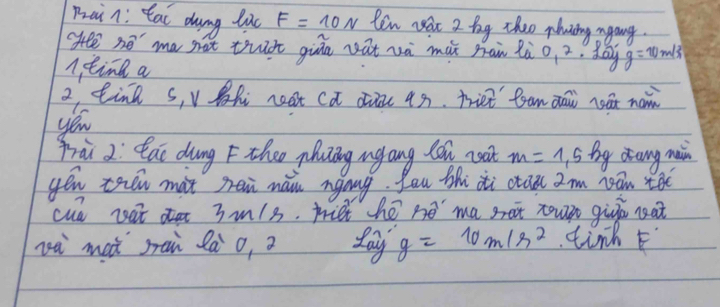 Bài 1: Tác dụng lực F = 10N lên vật 2 kg theo phương ngang.
Hệ số ma sát trượt giữa vật và mặt sàn là 0,2. Lấy g = 10m/s
1, tính a
2, tính s, v khi vật cđ được 4s. Biết ban đầu vật nằm
yên
Bài 2: Tác dụng F theo phương ngang lên vật m = 1,5 kg đang nằm
yên trên mặt sàn nằm ngang. Sau khi đi được 2m vận tốc
của vật đạt 3m/s. Biết hệ số ma sát trượt giữa vật
và mặt sàn là 0,2 Lấy g = 10m/s². Tính F